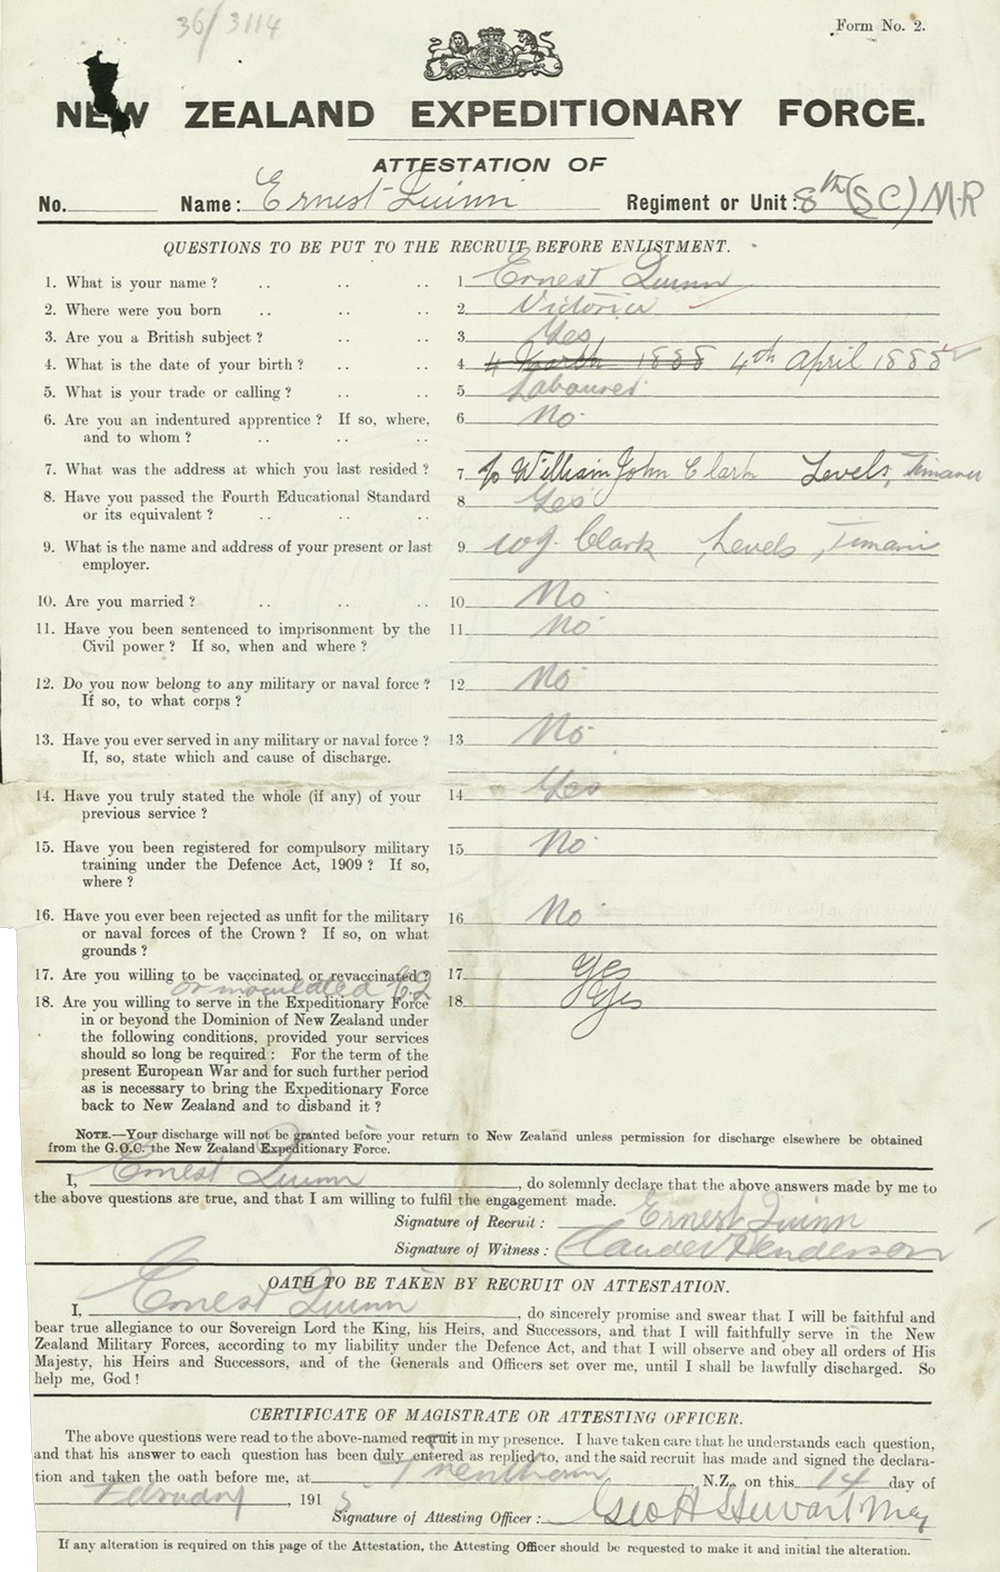 36/3114
Form No. 2.
NEW ZEALAND EXPEDITIONARY FORCE.
ATTESTATION OF
No. Name: Ernest Quinn Regiment or Unit: 8th (SC) M.R
QUESTIONS TO BE PUT TO THE RECRUIT BEFORE ENLISTMENT.
1. What is your name? .. .. .. 1 Ernest Quinn
2. Where were you born .. .. .. 2 Victoria
3. Are you a British subject? .. .. 3 Yes
4. What is the date of your birth? .. .. 4 4 March 1888 4th April 1888
5. What is your trade or calling? .. .. 5 Labourer
6. Are you an indentured apprentice? If so, where, 6 No
and to whom? .. .. ..
7. What was the address at which you last resided? 7 c/o William John Clark Levels, Timaru
8. Have you passed the Fourth Educational Standard 8 Yes
or its equivalent? .. .. ..
9. What is the name and address of your present or last 9 W J. Clark Levels, Timaru
employer.
10. Are you married? .. .. .. 10 No
11. Have you been sentenced to imprisonment by the 11 No
Civil power? If so, when and where?
12. Do you now belong to any military or naval force? 12 No
If so, to what corps?
13. Have you ever served in any military or naval force? 13 No
If, so, state which and cause of discharge.
14. Have you truly stated the whole (if any) of your 14 Yes
previous service?
15. Have you been registered for compulsory military 15 No
training under the Defence Act, 1909? If so,
where?
16. Have you ever been rejected as unfit for the military 16 No
or naval forces of the Crown? If so, on what
grounds?
17. Are you willing to be vaccinated or revaccinated? 17 Yes
or inoculated
18. Are you willing to serve in the Expeditionary Force 18 Yes
in or beyond the Dominion of New Zealand under
the following conditions, provided your services
should so long be required: For the term of the
present European War and for such further period
as is necessary to bring the Expeditionary Force
back to New Zealand and to disband it?
NOTE.—Your discharge will not be granted before your return to New Zealand unless permission for discharge elsewhere be obtained
from the G.O.C. the New Zealand Expeditionary Force.
I, Ernest Quinn, do solemnly declare that the above answers made by me to
the above questions are true, and that I am willing to fulfil the engagement made.
Signature of Recruit: Ernest Quinn
Signature of Witness: Claude Henderson
OATH TO BE TAKEN BY RECRUIT ON ATTESTATION.
I, Ernest Quinn, do sincerely promise and swear that I will be faithful and
bear true allegiance to our Sovereign Lord the King, his Heirs, and Successors, and that I will faithfully serve in the New
Zealand Military Forces, according to my liability under the Defence Act, and that I will observe and obey all orders of His
Majesty, his Heirs and Successors, and of the Generals and Officers set over me, until I shall be lawfully discharged. So
help me, God!
CERTIFICATE OF MAGISTRATE OR ATTESTING OFFICER.
The above questions were read to the above-named recruit in my presence. I have taken care that he understands each question,
and that his answer to each question has been duly entered as replied to, and the said recruit has made and signed the declara-
tion and taken the oath before me, at Trentham N.Z., on this 14 day of
February, 1915
Signature of Attesting Officer: Geo H Stewart Maj
If any alteration is required on this page of the Attestation, the Attesting Officer should be requested to make it and initial the alteration.